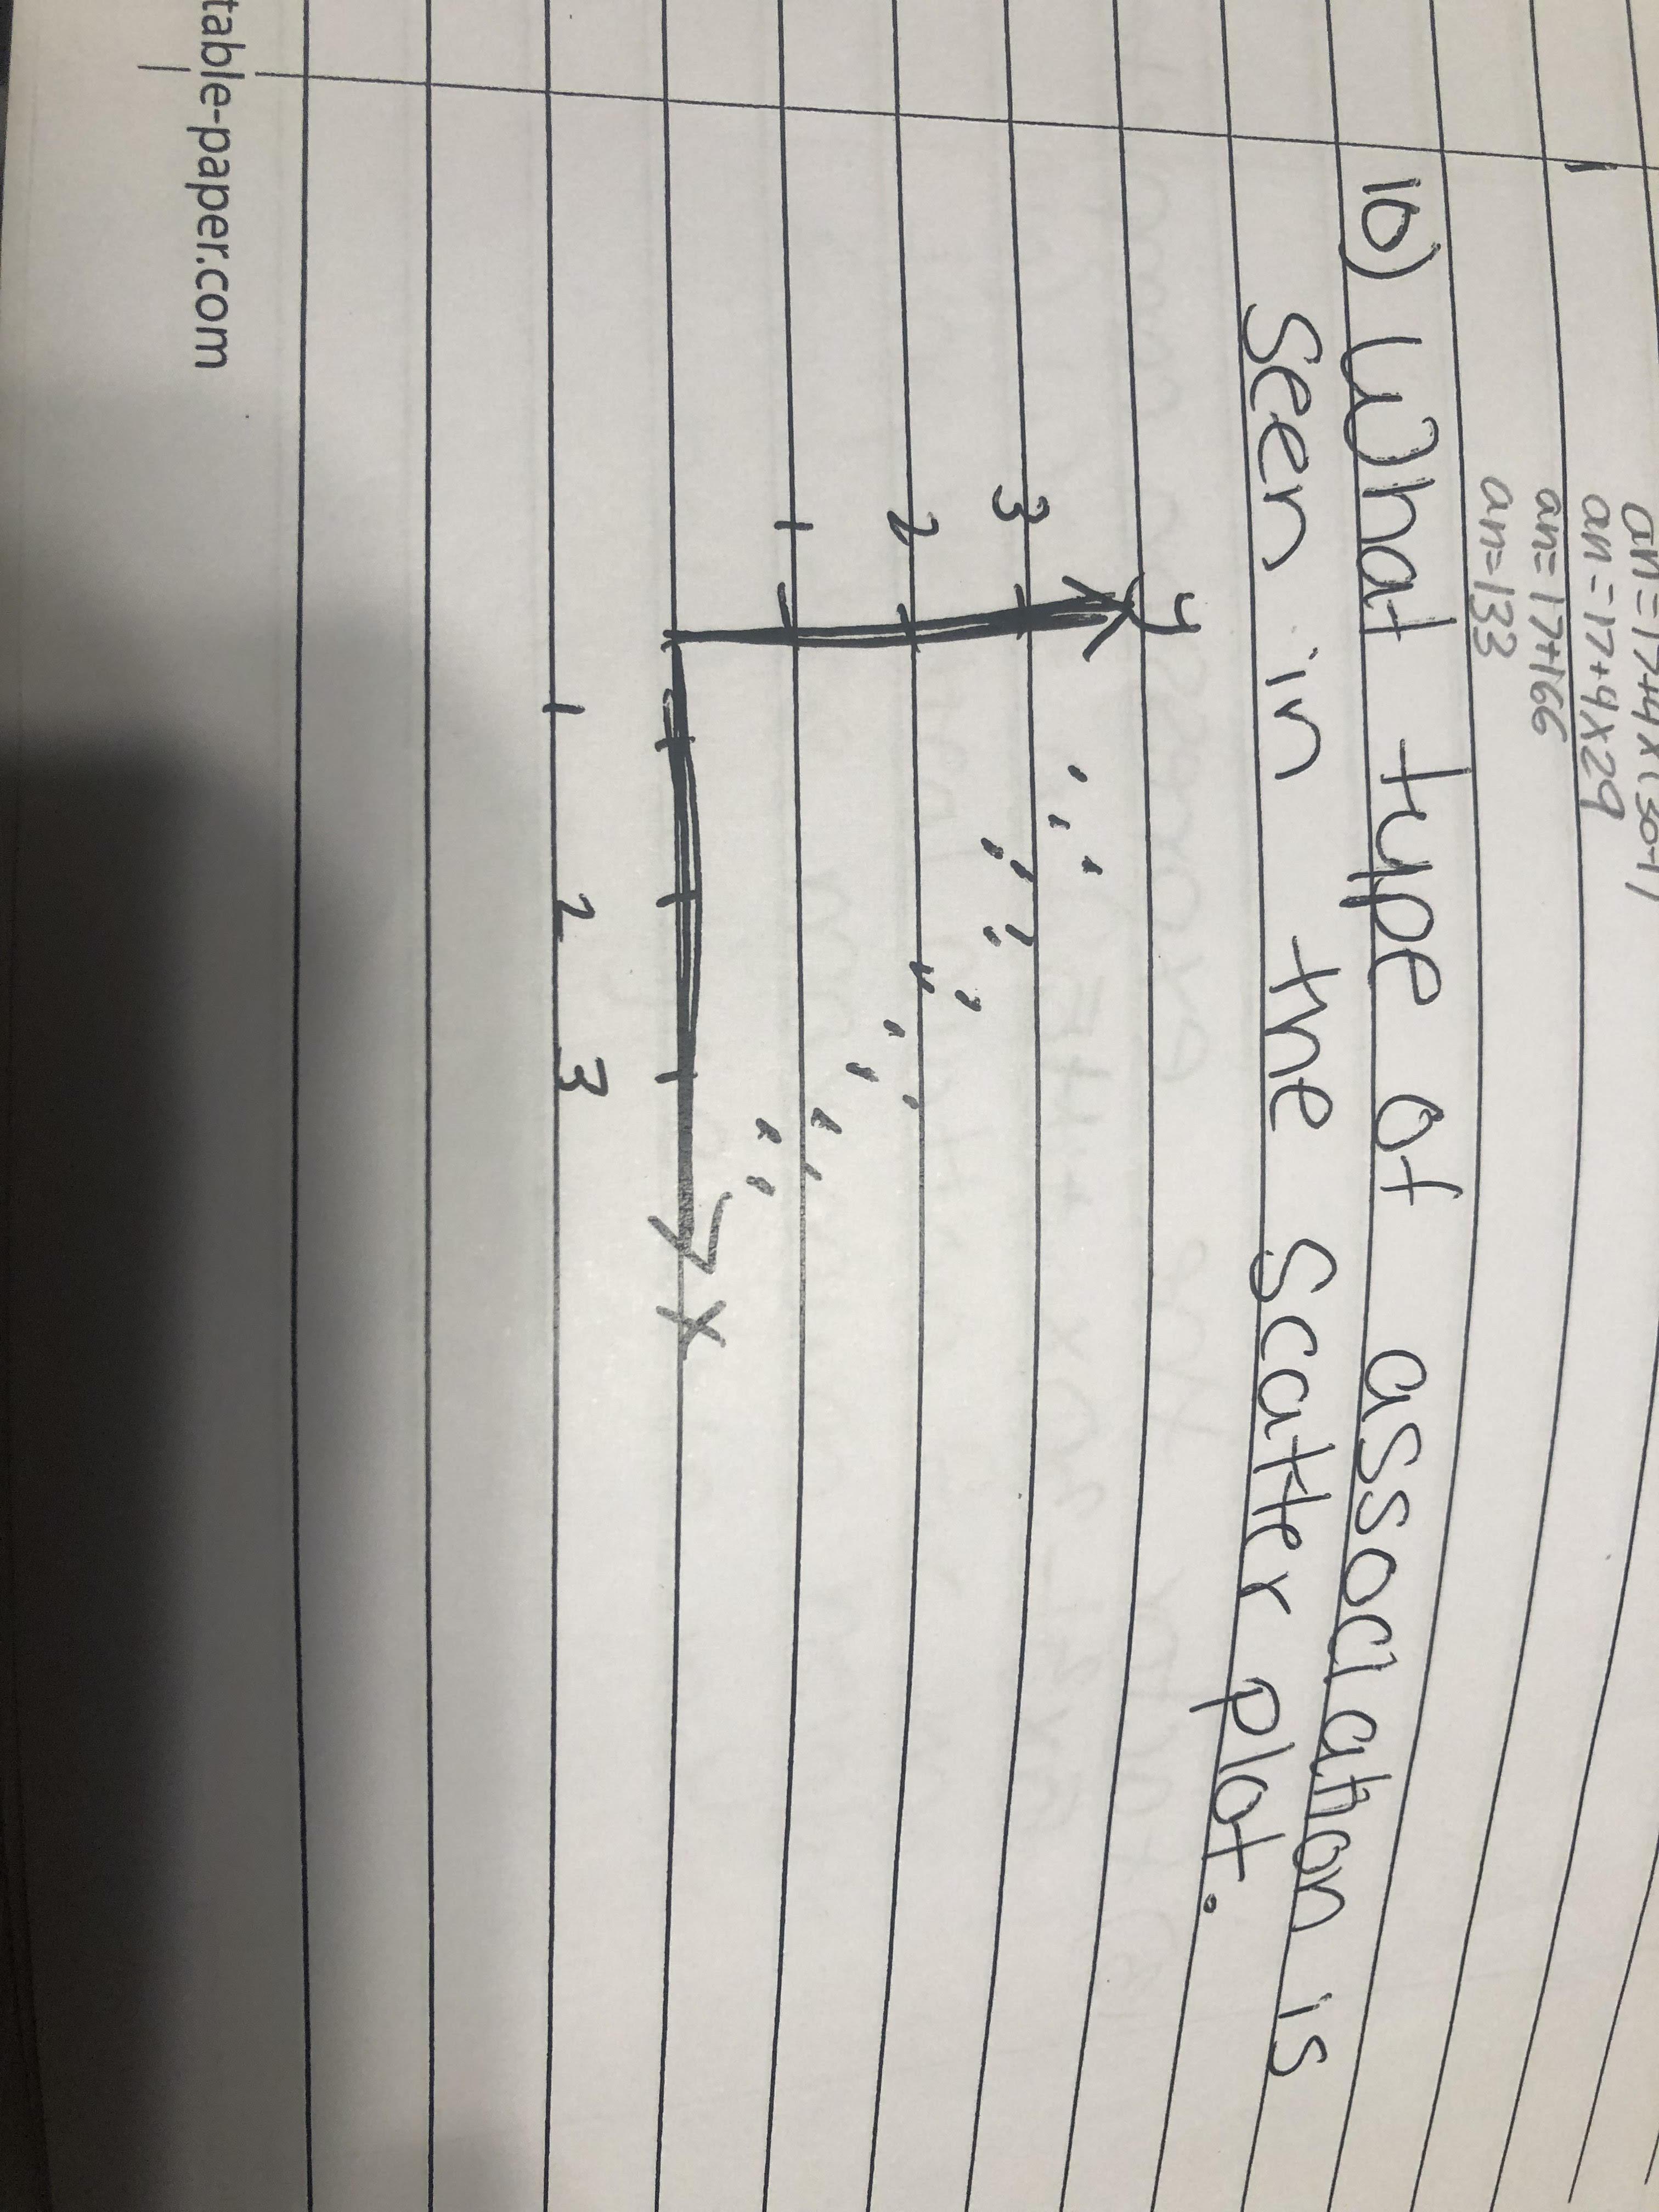 an=17+4x(30-1)
an=17+4x29
an=17+166
an=133
10) What type of association is
Seen in the Scatter plot.
y
3
2
1
1 2 3
x
table-paper.com